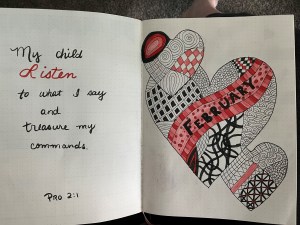 My child
Listen
to what I say
and
treasure my
commands.
PRO 2:1
FEBRUARY